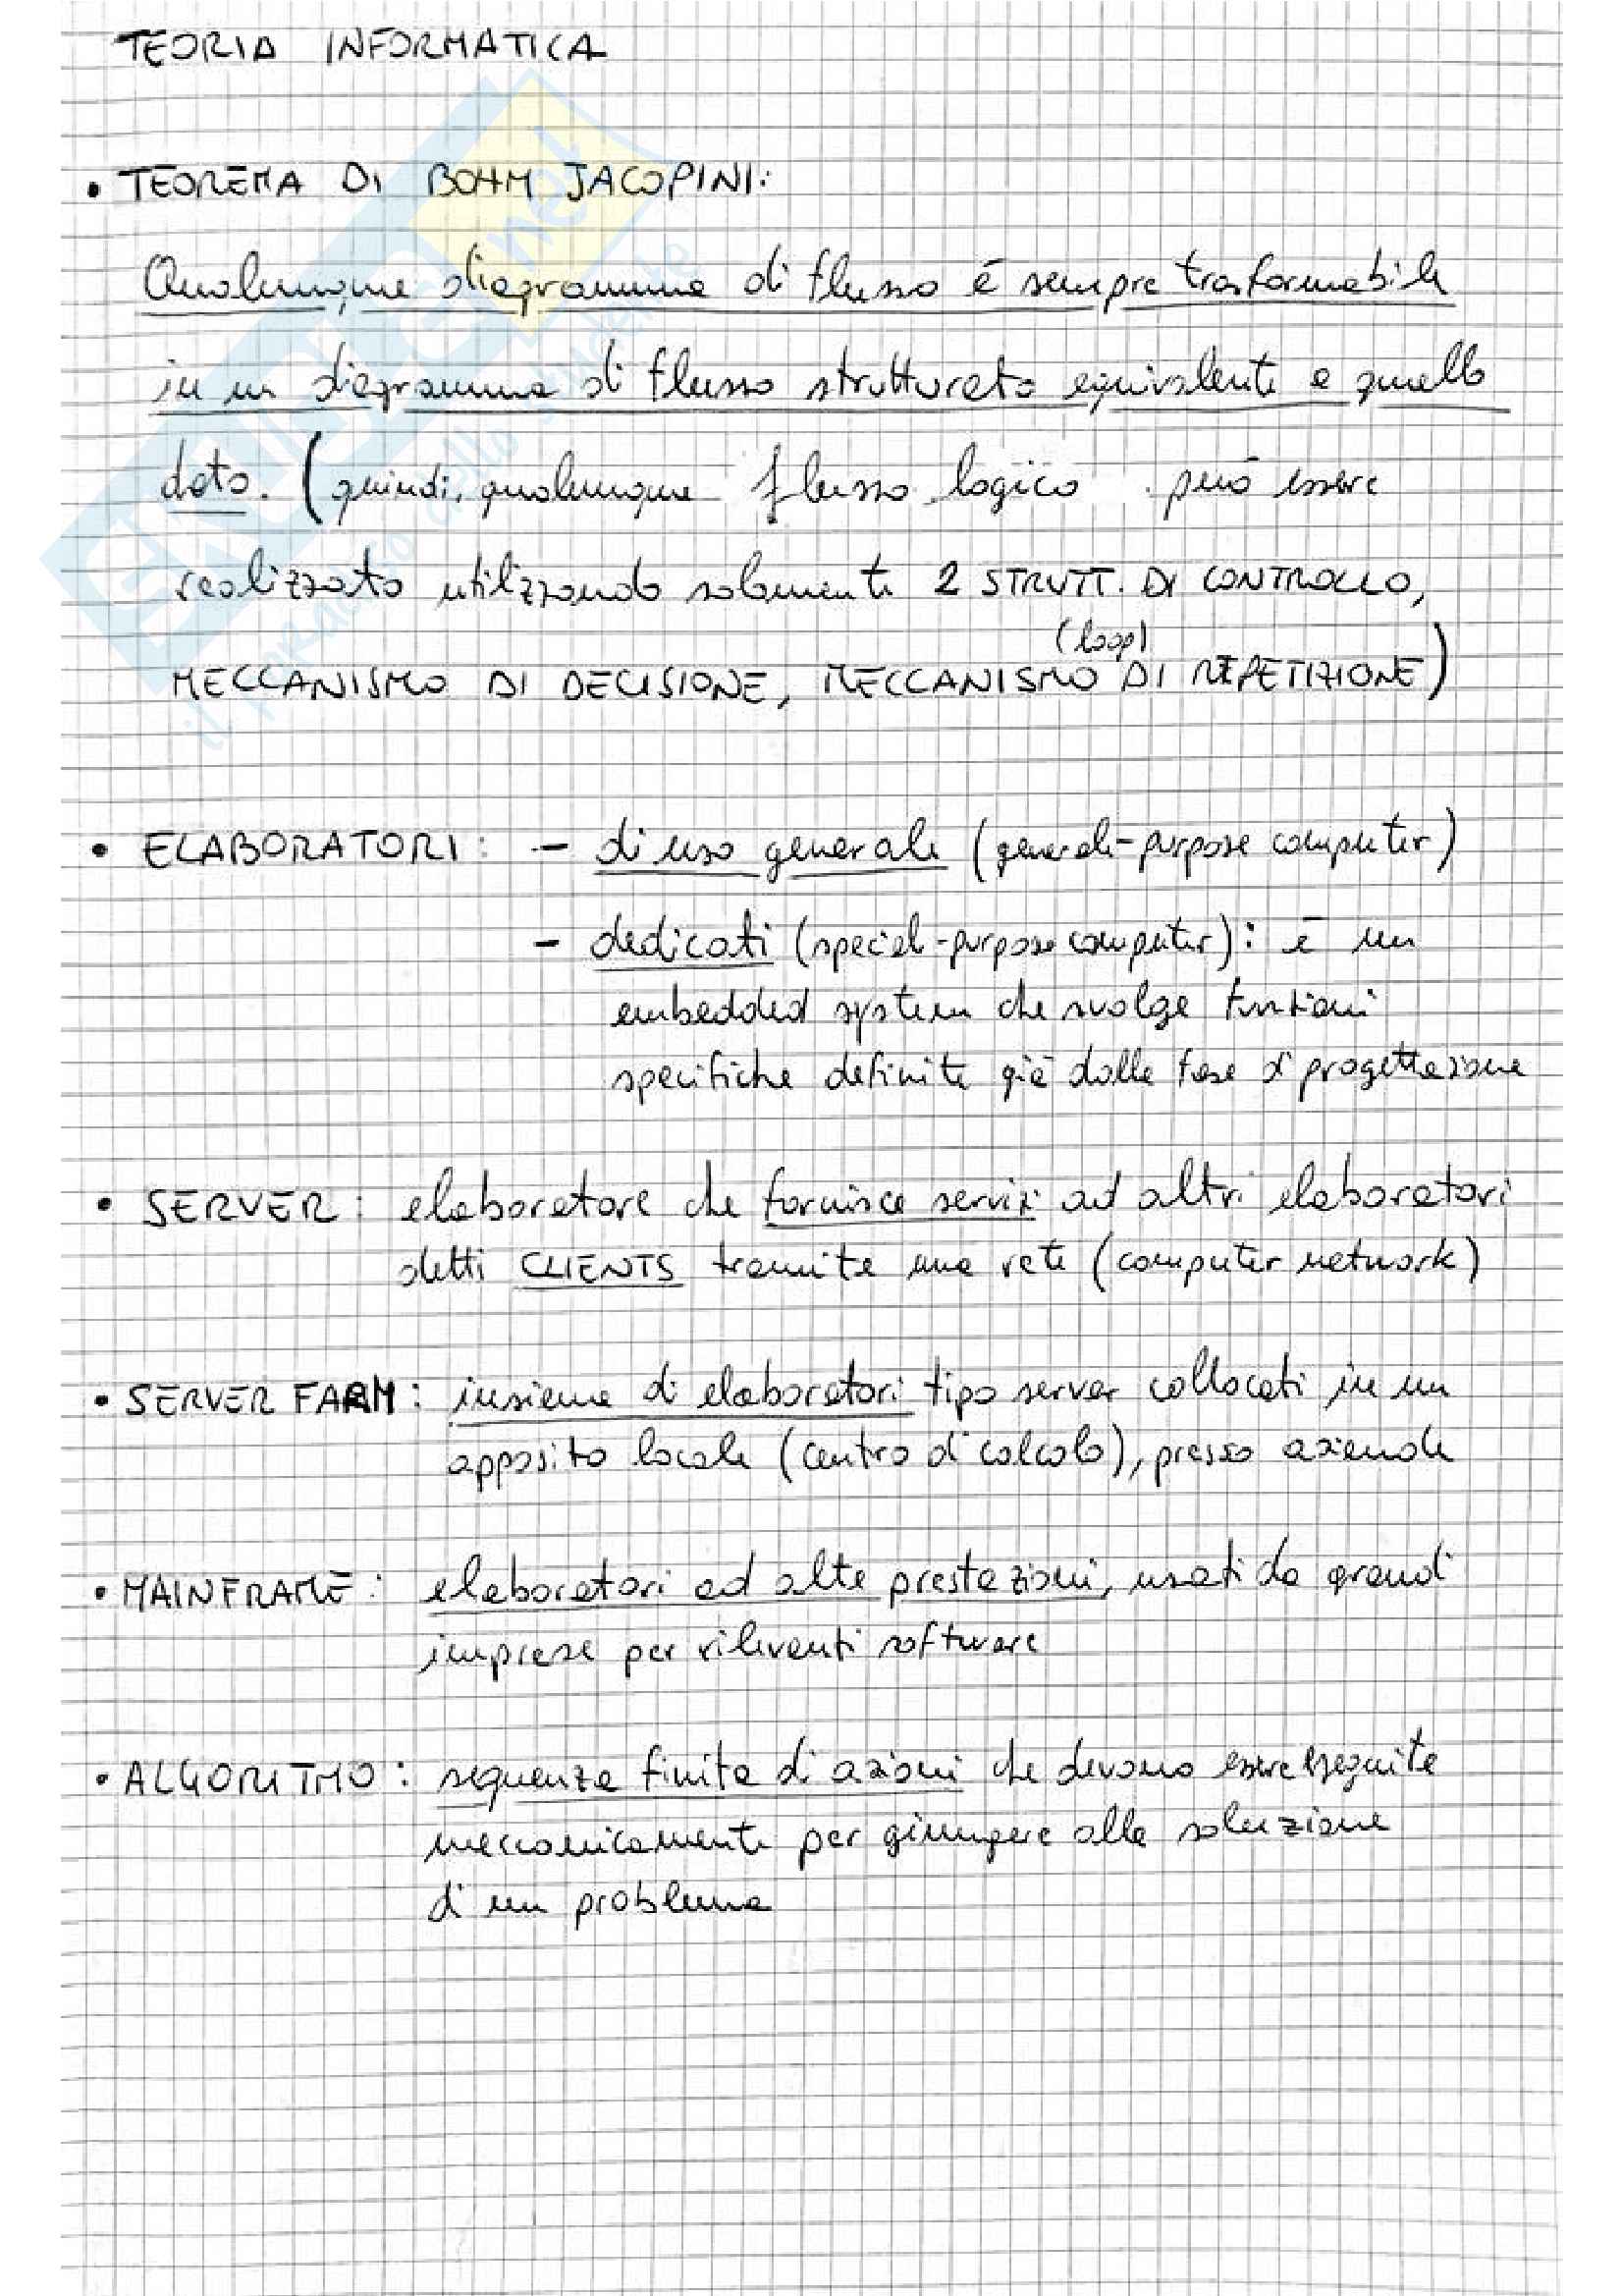 TEORIA INFORMATICA
• TEOREMA DI BOHM JACOPINI:
Qualunque diagramma di flusso è sempre trasformabile
in un diagramma di flusso strutturato equivalente a quello
dato. (quindi, qualunque flusso logico può essere
realizzato utilizzando solamente 2 STRUTT. DI CONTROLLO,
(loop)
MECCANISMO DI DECISIONE, MECCANISMO DI REPETIZIONE)
• ELABORATORI: - di uso generale (general-purpose computer)
- dedicati (special-purpose computer): è un
embedded system che svolge funzioni
specifiche definite già dalla fase di progettazione
• SERVER: elaboratore che fornisce servizi ad altri elaboratori
detti CLIENTS tramite una rete (computer network)
• SERVER FARM: insieme di elaboratori tipo server collocati in un
apposito locale (centro di calcolo), presso aziende
• MAINFRAME: elaboratori ad alte prestazioni, usati da grandi
imprese per rilevanti software
• ALGORITMO: sequenza finita di azioni che devono essere eseguite
meccanicamente per giungere alla soluzione
di un problema